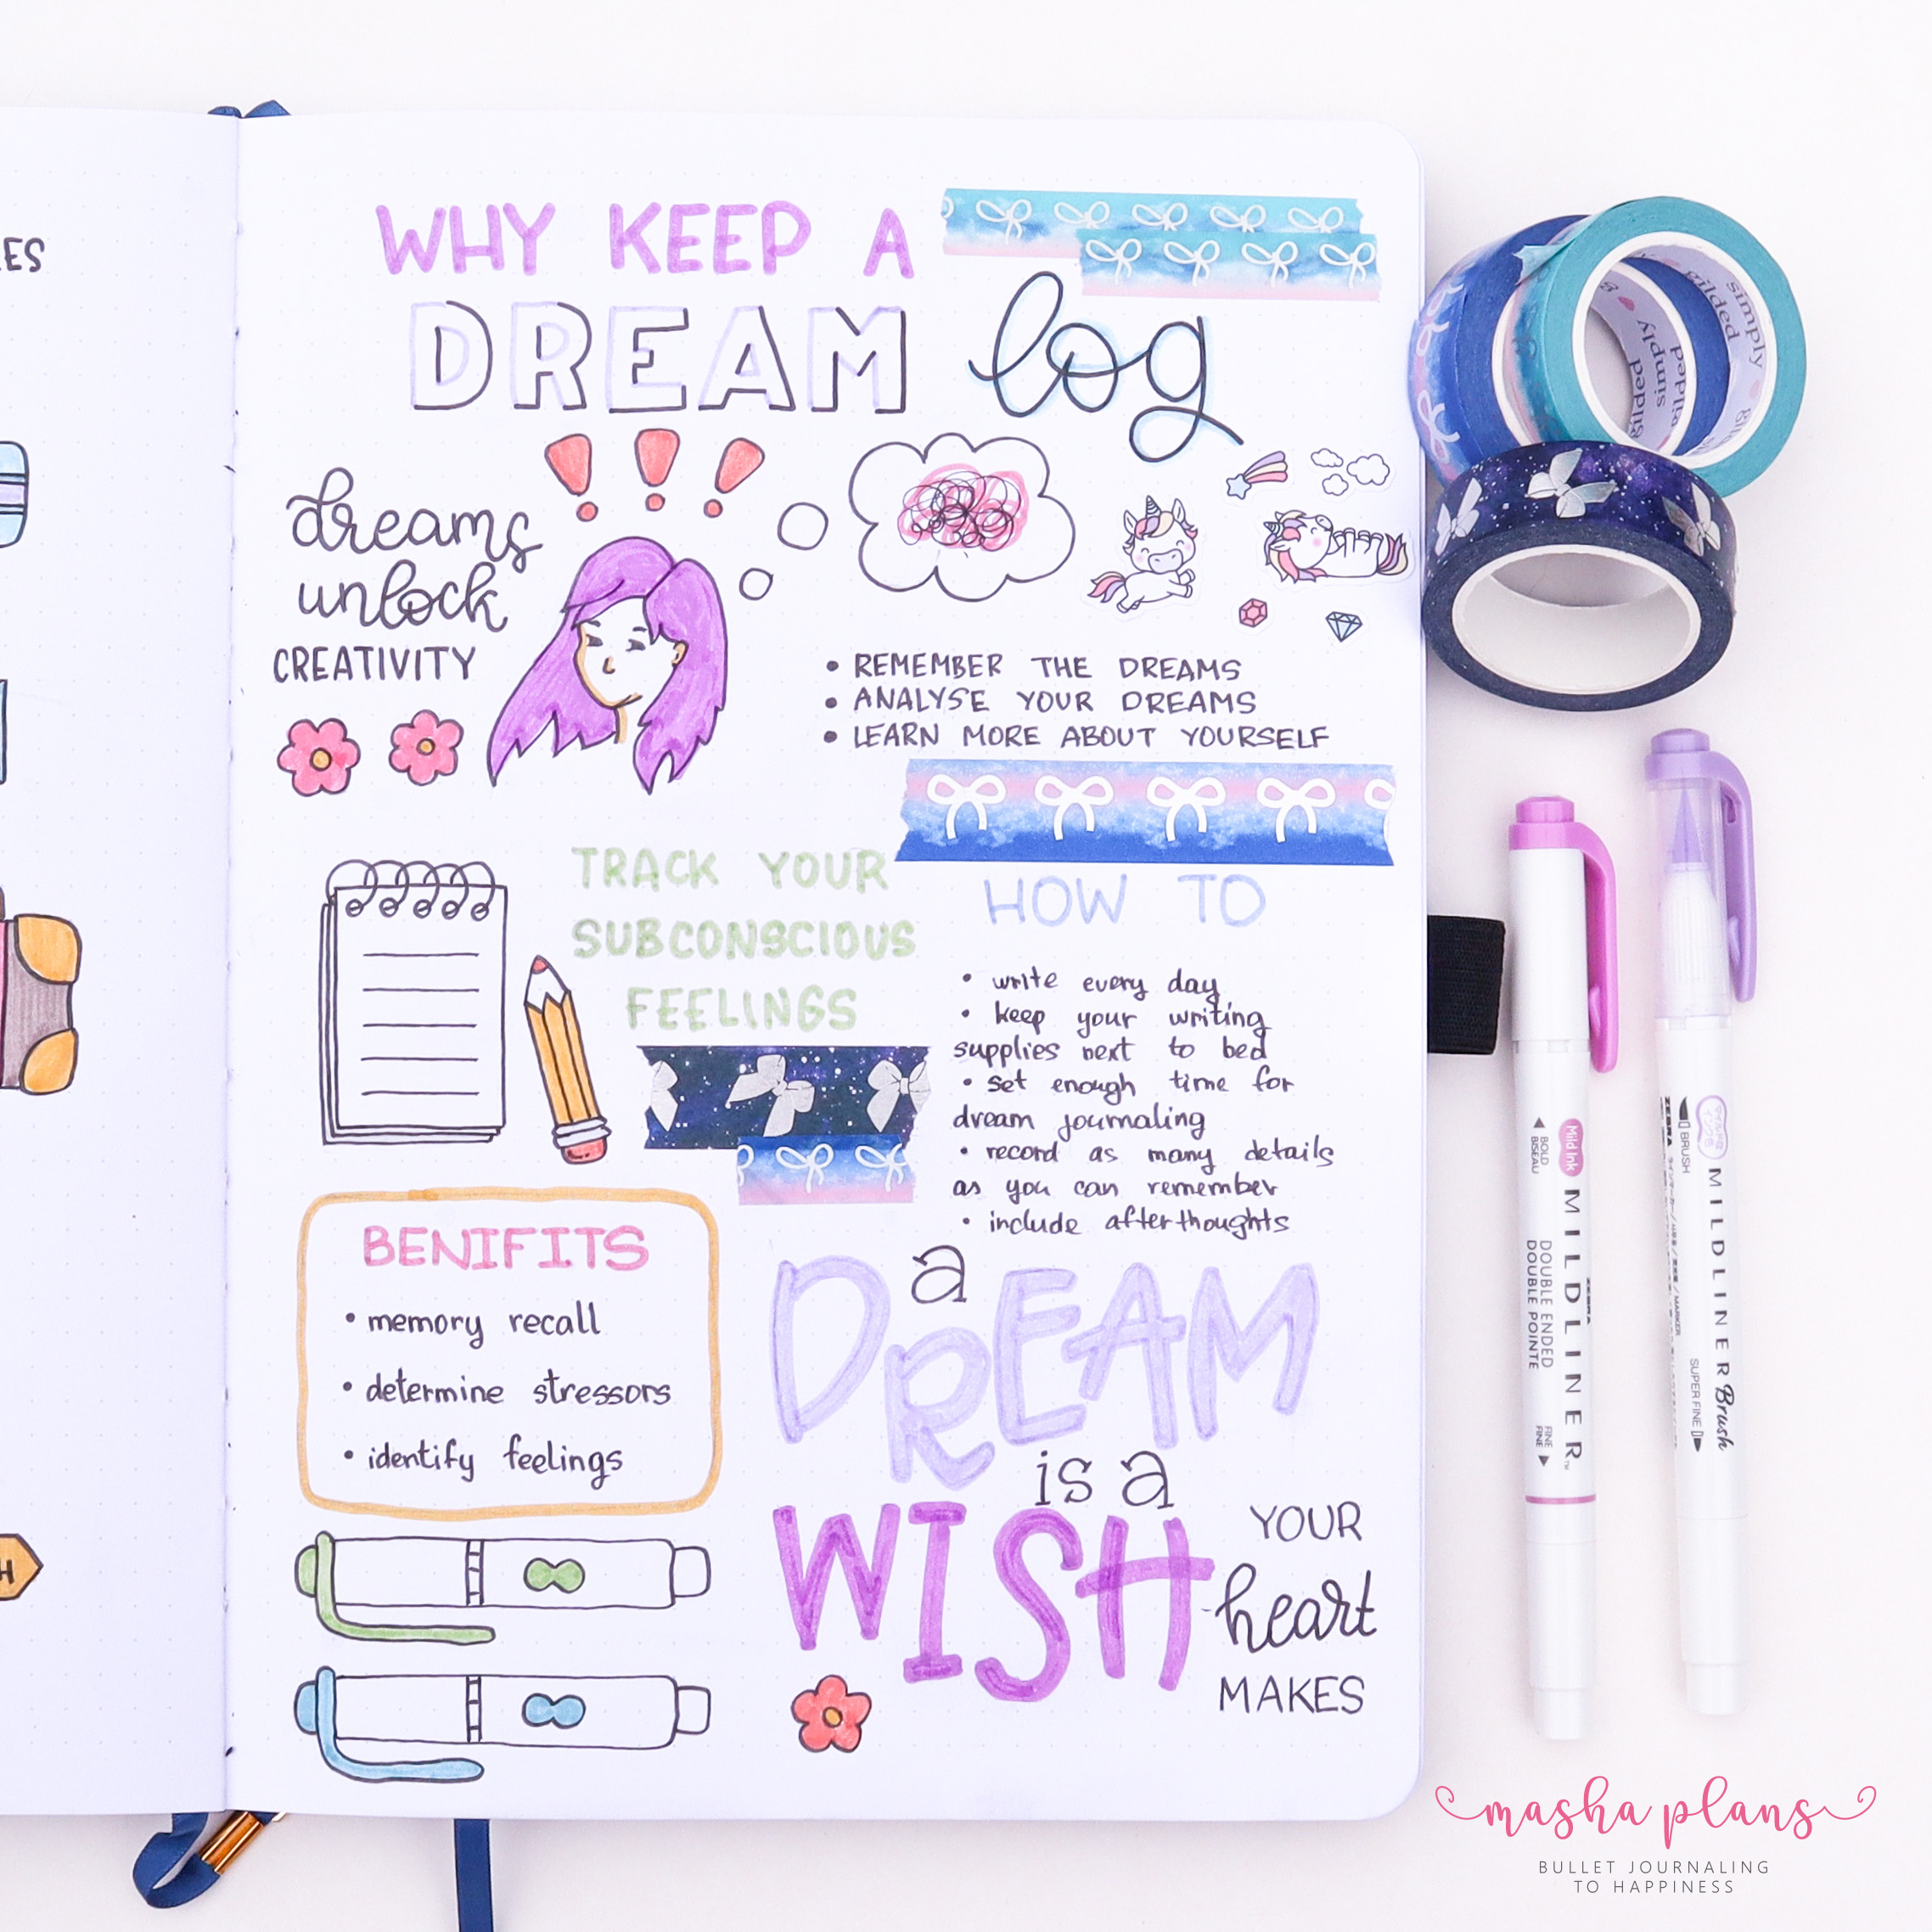 ES
WHY KEEP A
DREAM log
dreams
unlock
CREATIVITY
• REMEMBER THE DREAMS
• ANALYSE YOUR DREAMS
• LEARN MORE ABOUT YOURSELF
TRACK YOUR
SUBCONSCIOUS
FEELINGS
HOW TO
• write every day
• keep your writing
supplies next to bed
• set enough time for
dream journaling
• record as many details
as you can remember
• include afterthoughts
BENIFITS
• memory recall
• determine stressors
• identify feelings
a
DREAM
is a
WISH
YOUR
heart
MAKES
H
simply
gilded
simply
gilded
Mild Ink
MILDLINER
BOLD
BISEAU
DOUBLE ENDED
DOUBLE POINTE
FINE
FINE
ZEBRA
BRUSH
MILDLINER Brush
SUPER FINE
masha plans
BULLET JOURNALING
TO HAPPINESS